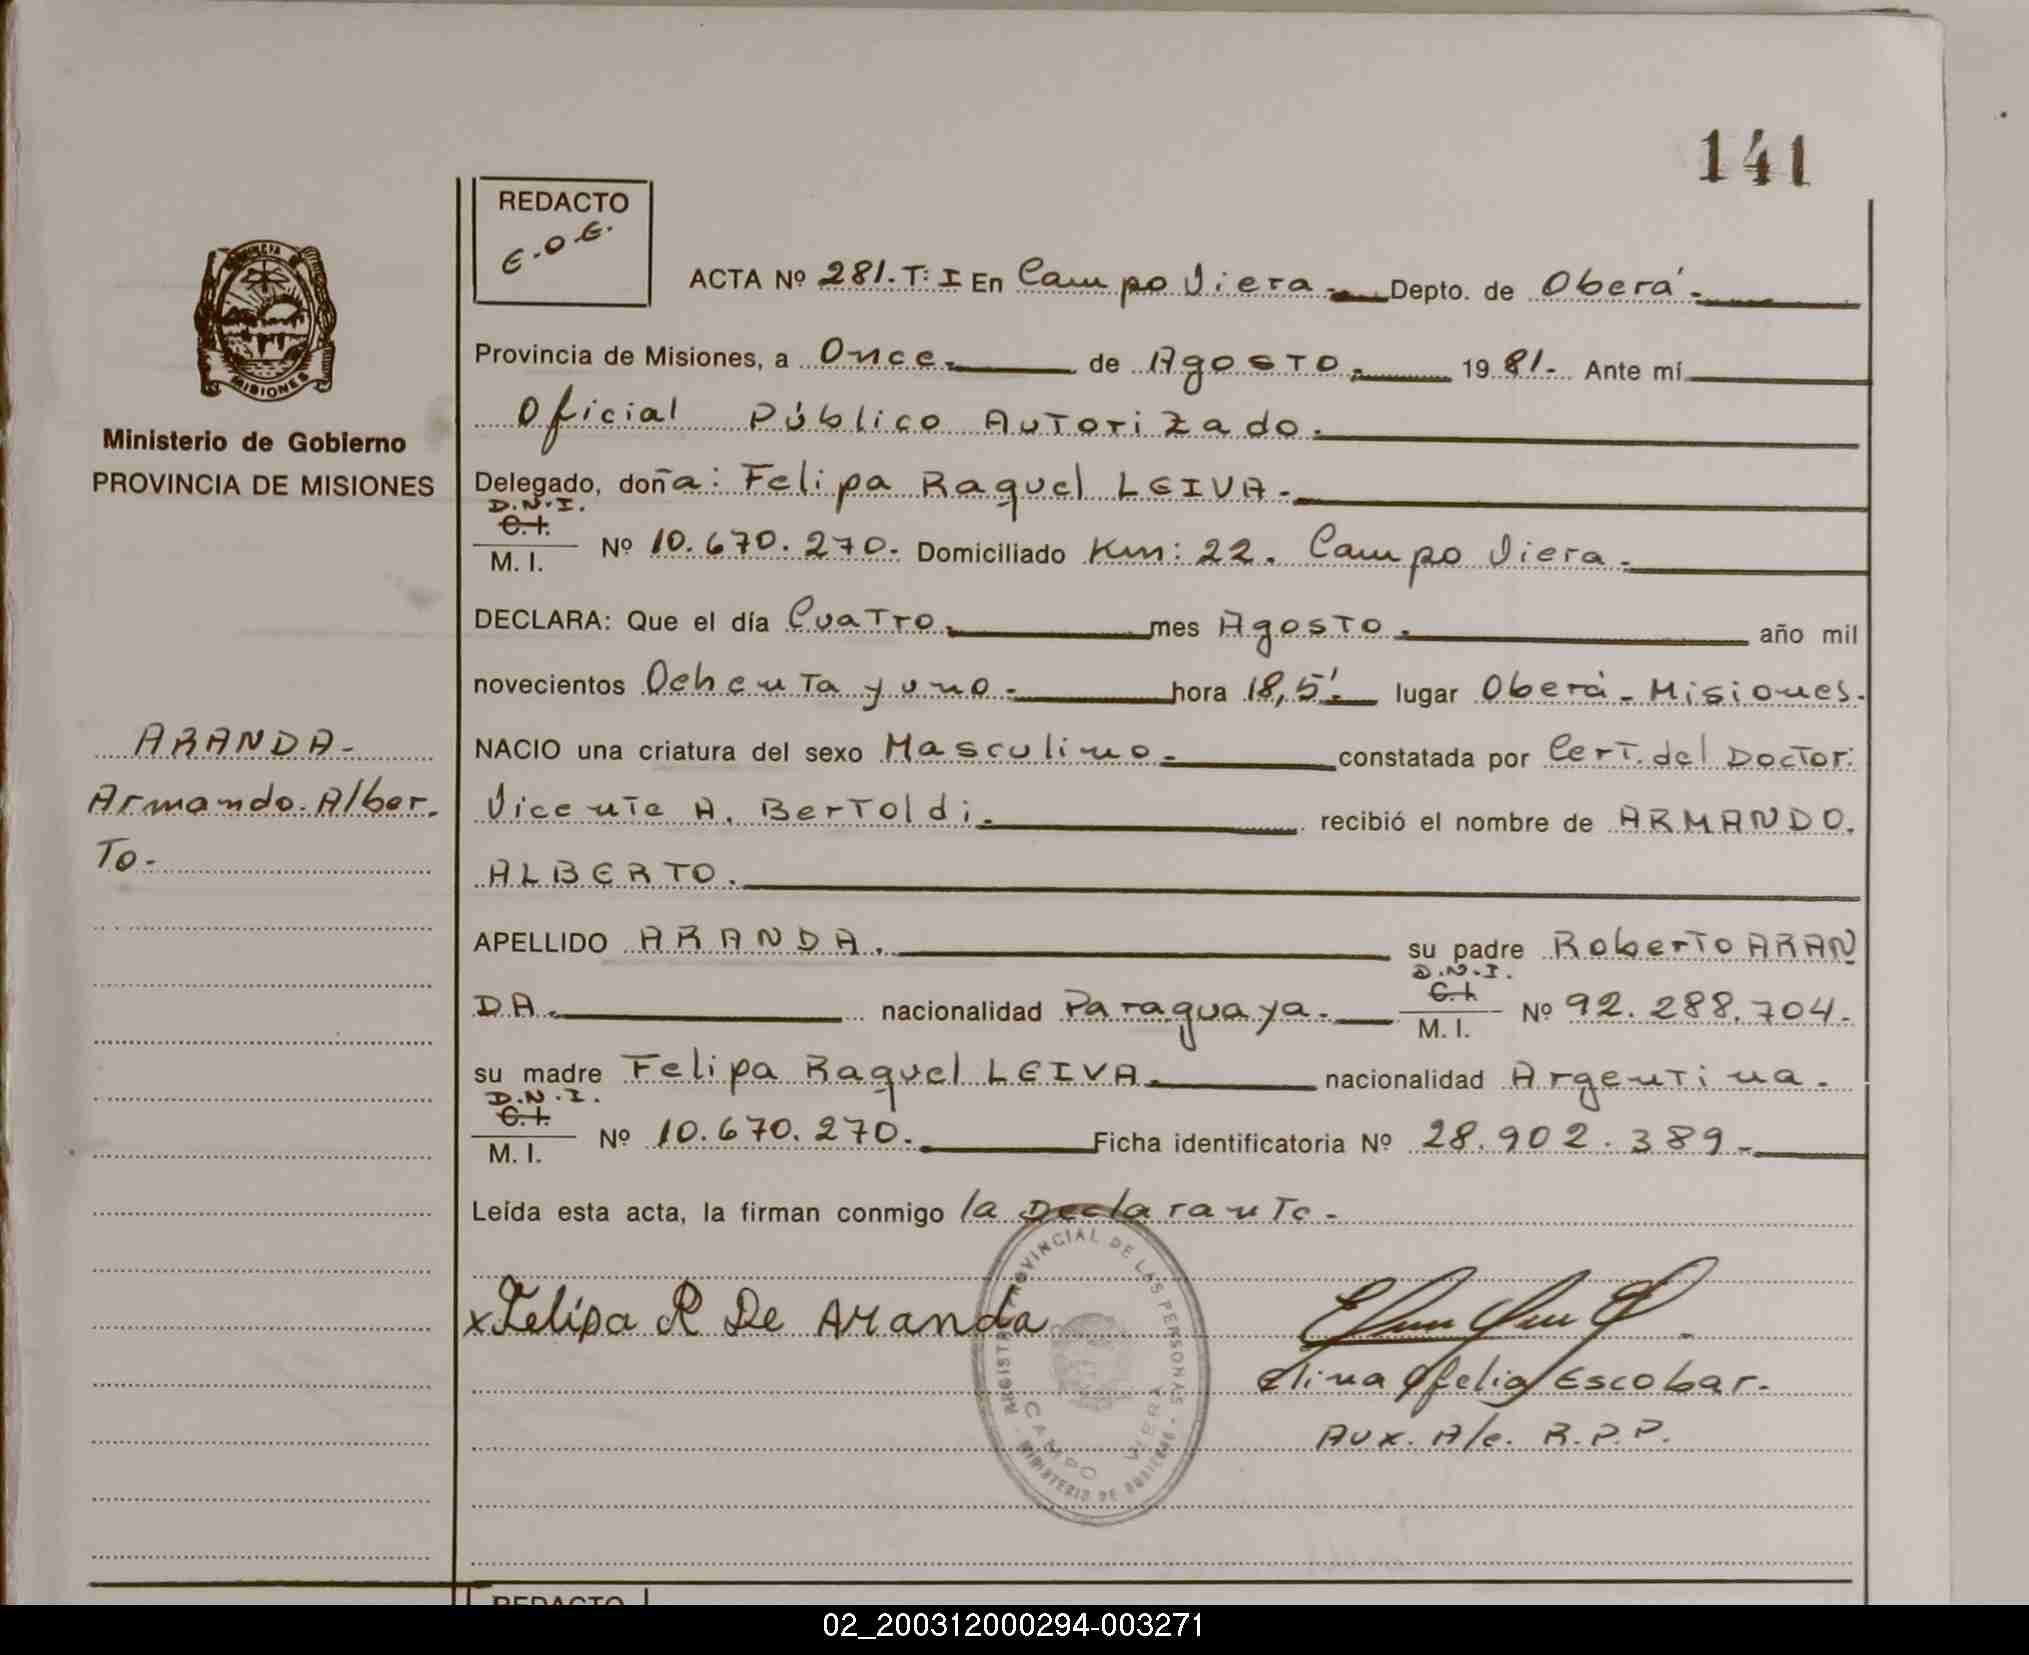 141
REDACTO
E.O.E.
ACTA Nº 281.T:I En Campo Viera.- Depto. de Oberá.-
Provincia de Misiones, a Once.- de Agosto.- 1981.- Ante mí
Oficial Público Autorizado.-
Ministerio de Gobierno
PROVINCIA DE MISIONES
Delegado, doña: Felipa Raquel LEIVA.-
D.N.I.
C.I.
M. I. Nº 10.670.270. Domiciliado Km: 22. Campo Viera.-
DECLARA: Que el día Cuatro.- mes Agosto.- año mil
novecientos Ochenta y uno.- hora 18,5'.- lugar Oberá-Misiones.
ARANDA-
Armando.Alber.
To-
NACIO una criatura del sexo Masculino.- constatada por Cert. del Doctor:
Vicente A. Bertoldi.- recibió el nombre de ARMANDO.
ALBERTO.-
APELLIDO ARANDA.- su padre Roberto ARAN
DA.- nacionalidad Paraguaya.- D.N.I. C.I. M. I. Nº 92.288.704.-
su madre Felipa Raquel LEIVA.- nacionalidad Argentina.-
D.N.I.
C.I.
M. I. Nº 10.670.270.- Ficha identificatoria Nº 28.902.389.-
Leída esta acta, la firman conmigo la Declarante.-
x Felipa R De Aranda
REGISTRO PROVINCIAL DE LAS PERSONAS
CAMPO VIERA
MINISTERIO DE GOBIERNO
Elina Ofelia Escobar.
Aux. A/c. R.P.P.
MISIONES
REDACTO
02_200312000294-003271